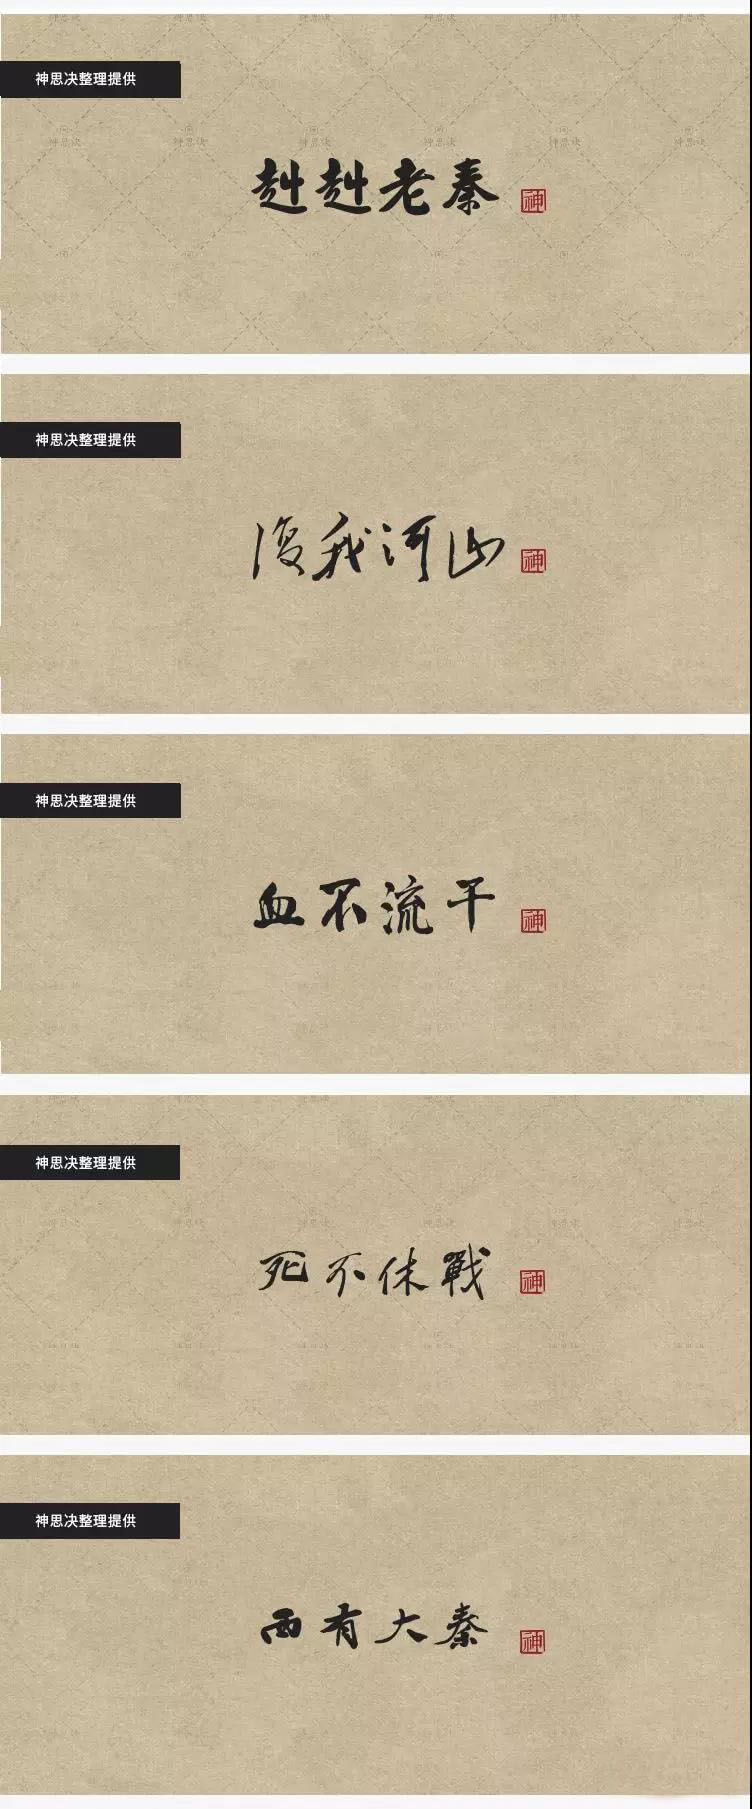 神思决整理提供
赳赳老秦
神
神思决整理提供
復我河山
神
神思决整理提供
血不流干
神
神思决整理提供
死不休戰
神
神思决整理提供
西有大秦
神